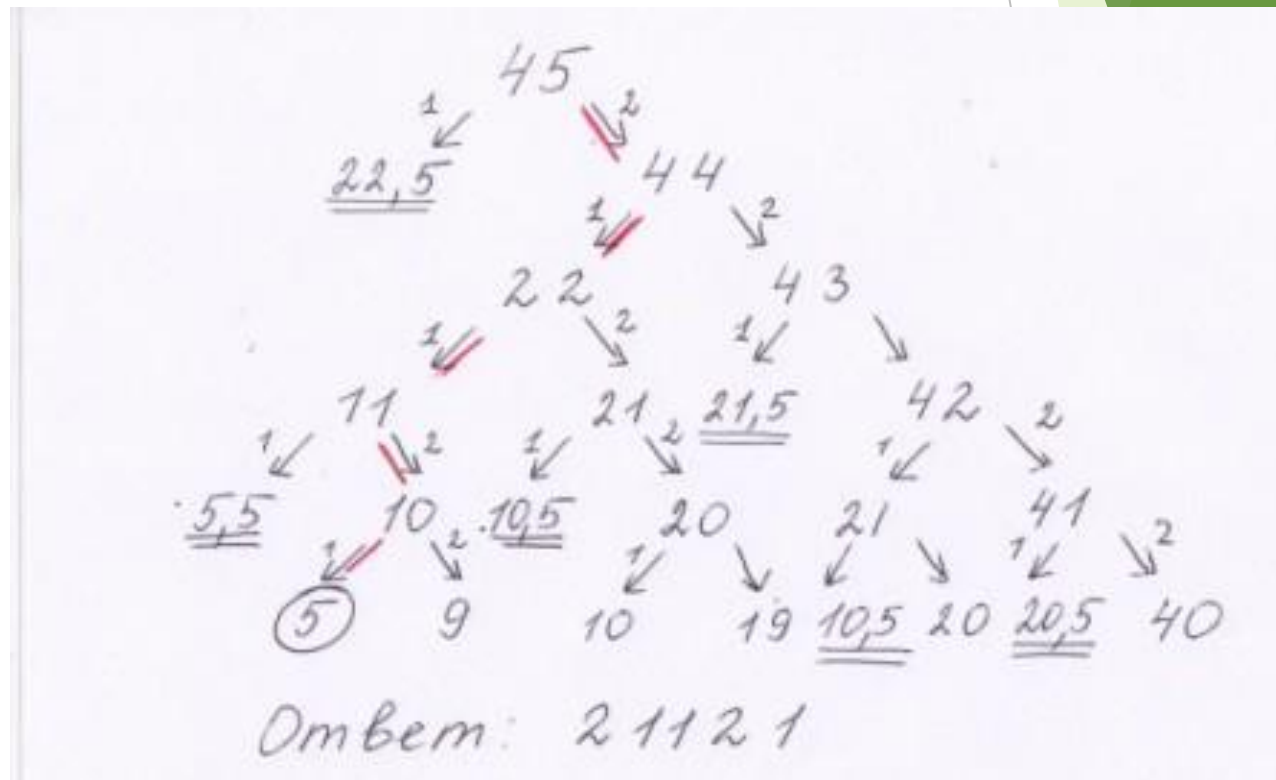 45
1 2
22,5 44
1 2
22 43
1 2 1
11 21 21,5 42
1 2 1 2 1 2
5,5 10 10,5 20 21 41
1 2 1 1 2
5 9 10 19 10,5 20 20,5 40
Ответ: 21121